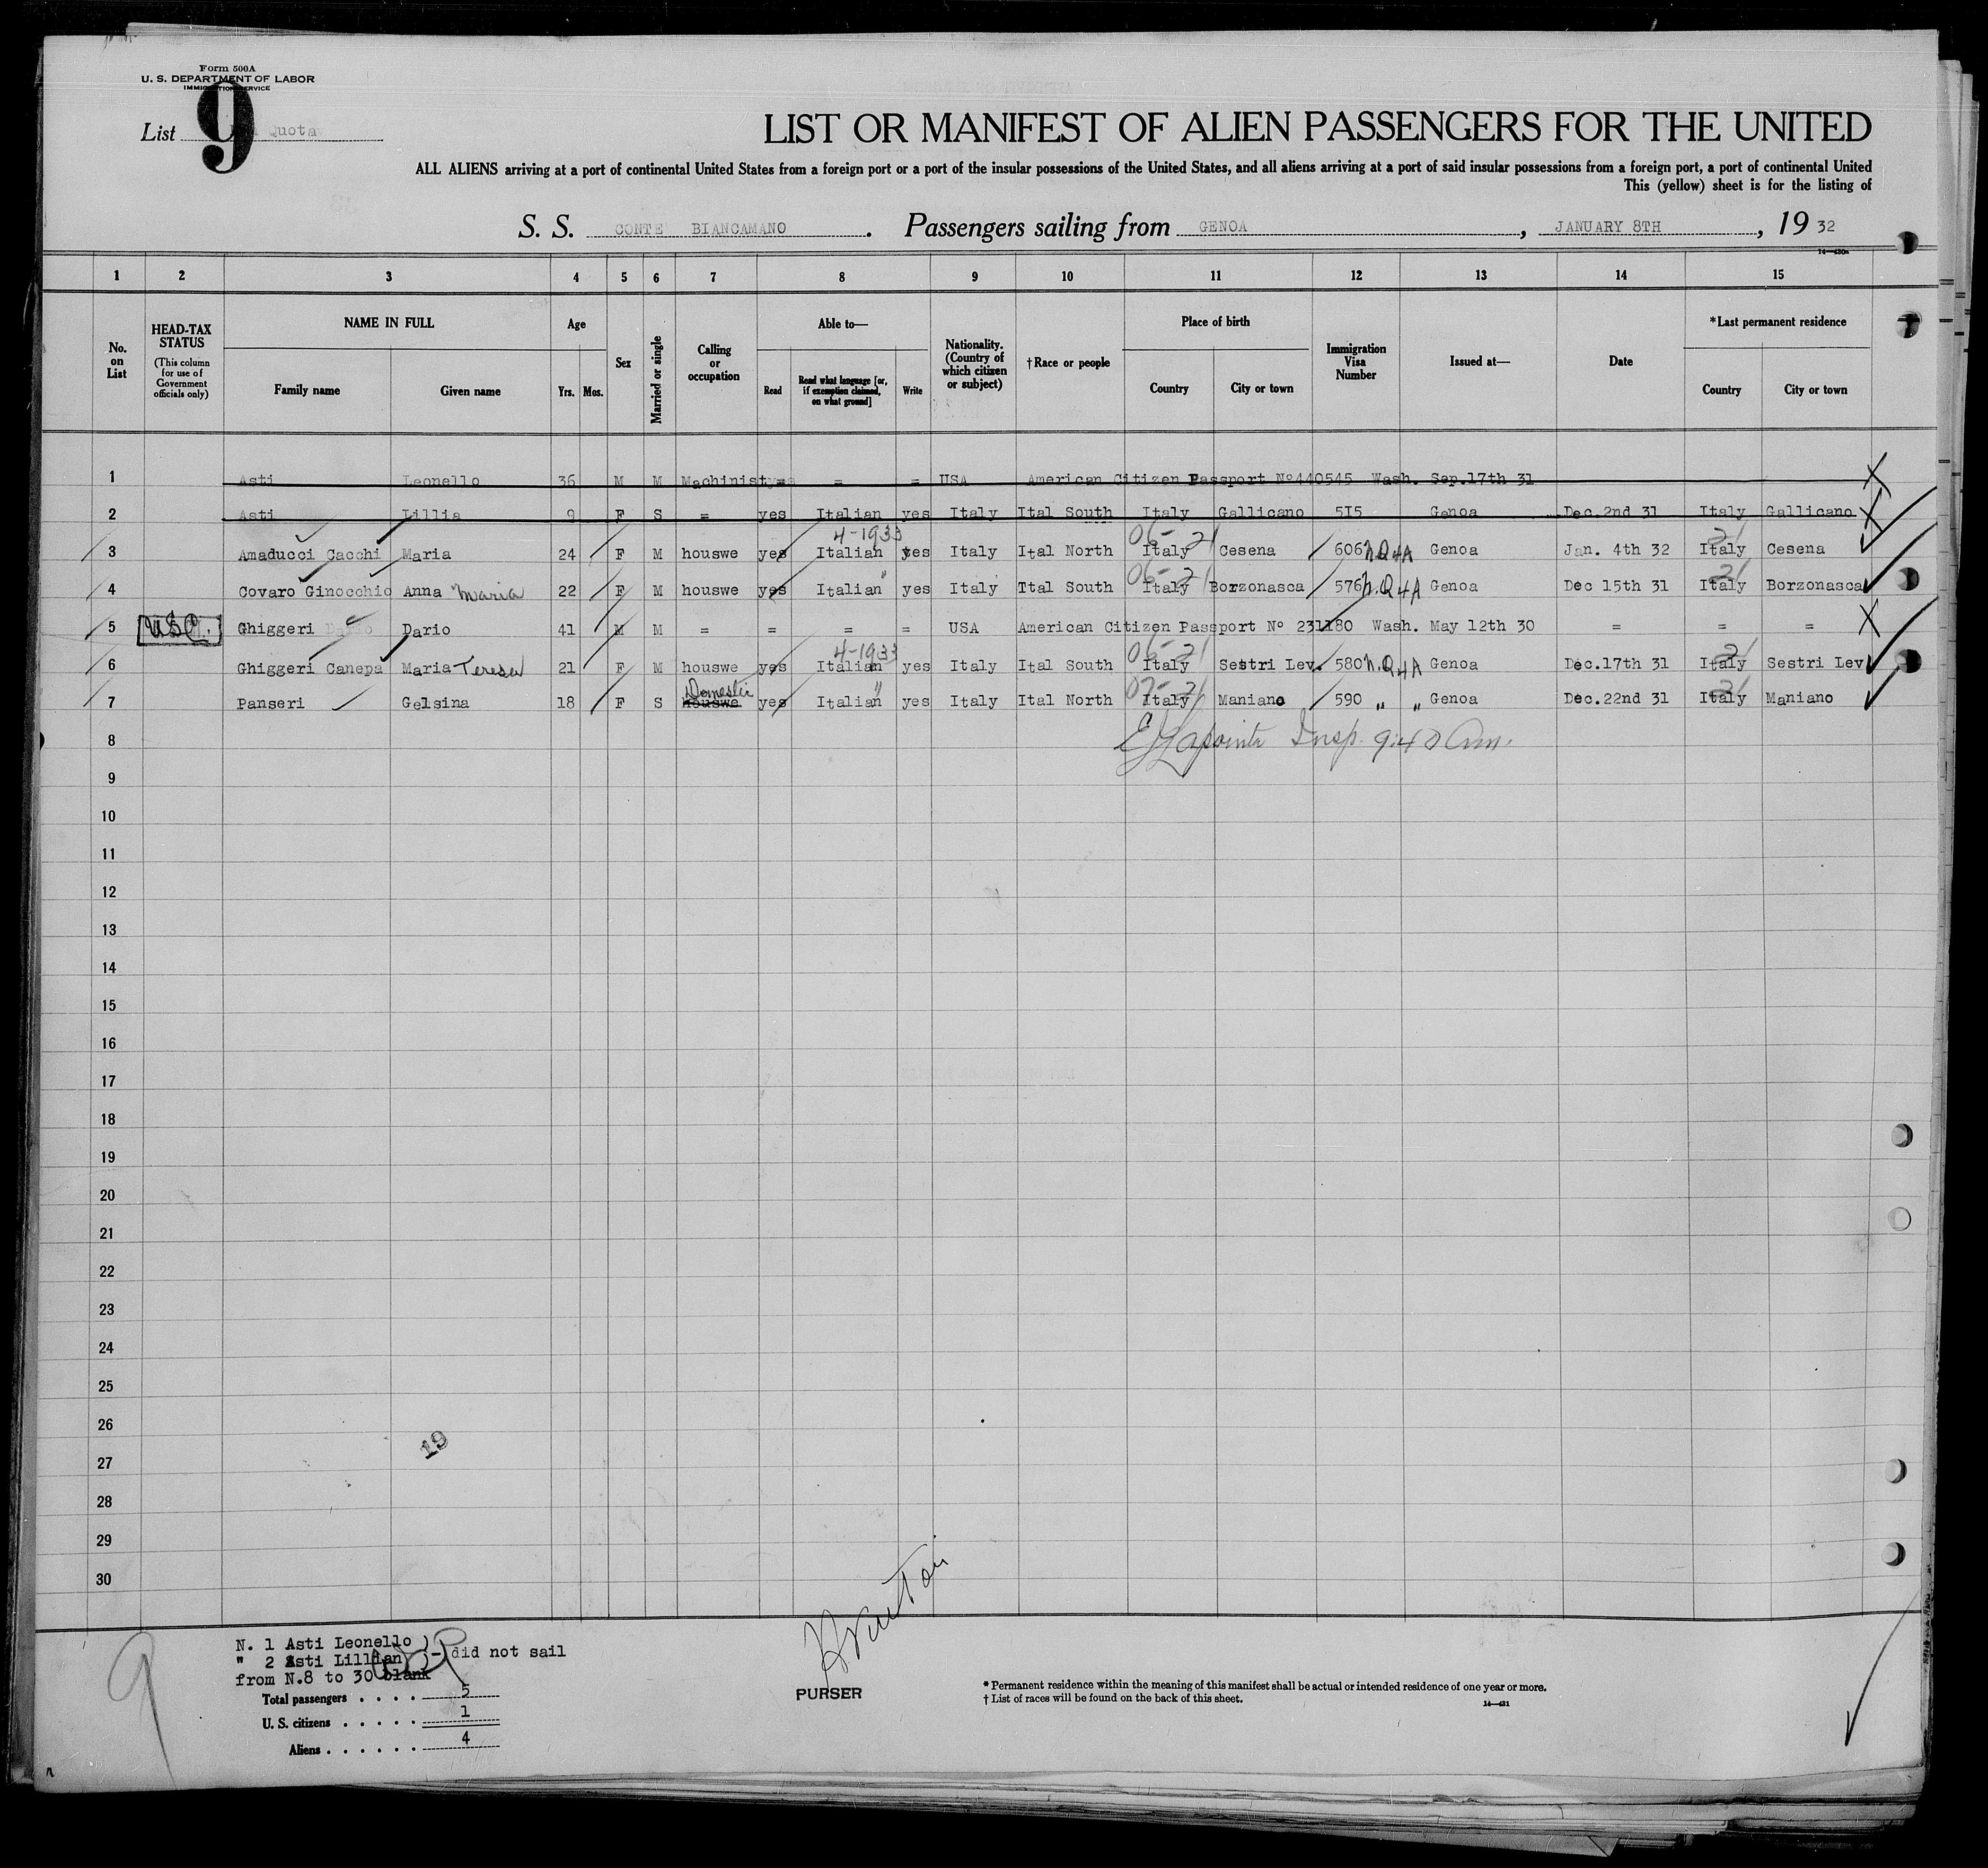 Form 500A
U. S. DEPARTMENT OF LABOR
IMMIGRATION SERVICE
9
List Quota
LIST OR MANIFEST OF ALIEN PASSENGERS FOR THE UNITED
ALL ALIENS arriving at a port of continental United States from a foreign port or a port of the insular possessions of the United States, and all aliens arriving at a port of said insular possessions from a foreign port, a port of continental United
This (yellow) sheet is for the listing of
S. S. CONTE BIANCAMANO. Passengers sailing from GENOA, JANUARY 8TH, 19 32
14—430a
1 2 3 4 5 6 7 8 9 10 11 12 13 14 15
No. on List
HEAD-TAX STATUS
(This column for use of Government officials only)
NAME IN FULL
Family name Given name
Age
Yrs. Mos.
Sex
Married or single
Calling or occupation
Able to—
Read Read what language [or, if exemption claimed, on what ground] Write
Nationality. (Country of which citizen or subject)
†Race or people
Place of birth
Country City or town
Immigration Visa Number
Issued at—
Date
*Last permanent residence
Country City or town
1 Asti Leonello 36 M M Machinist = = USA American Citizen Passport Nº440545 Wash. Sep.17th 31 X
2 Asti Lillia 9 F S = yes Italian yes Italy Ital South Italy Gallicano 5I5 Genoa Dec.2nd 31 Italy Gallicano X
4-1933 05-21 21
3 Amaducci Cacchi Maria 24 F M houswe yes Italian yes Italy Ital North Italy Cesena 606 N.Q4A Genoa Jan. 4th 32 Italy Cesena
" 05-21 21
4 Covaro Ginocchio Anna Maria 22 F M houswe yes Italian yes Italy Ttal South Italy Borzonasca 576 N.Q4A Genoa Dec 15th 31 Italy Borzonasca
5 U.S.C. Ghiggeri Dario 41 M M = = = = USA American Citizen Passport Nº 231180 Wash. May 12th 30 = = = X
4-1933 05-21 21
6 Ghiggeri Canepa Maria Teresa 21 F M houswe yes Italian yes Italy Ital South Italy Sestri Lev. 580 N.Q4A Genoa Dec.17th 31 Italy Sestri Lev
Domestic " 07-21 21
7 Panseri Gelsina 18 F S houswe yes Italian yes Italy Ital North Italy Maniano 590 " " Genoa Dec.22nd 31 Italy Maniano
8 Insp. 9:40 Am.
9
10
11
12
13
14
15
16
17
18
19
20
21
22
23
24
25
26
19
27
28
29
30
9
N. 1 Asti Leonello )
" 2 Asti Lillian )- did not sail
from N.8 to 30 blank
Total passengers . . . . 5
U. S. citizens . . . . . 1
Aliens . . . . . . 4
PURSER
* Permanent residence within the meaning of this manifest shall be actual or intended residence of one year or more.
† List of races will be found on the back of this sheet.
14—431